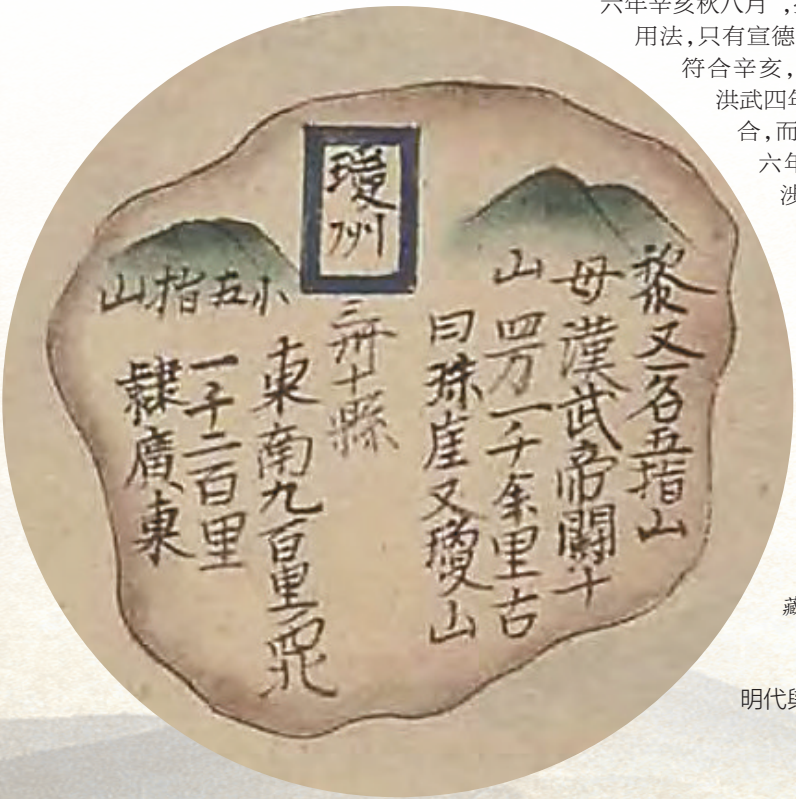 六年辛亥秋八月
用法，只有宣德
符合辛亥，
洪武四年
合，而
六年
涉
瓊州
黎母山
又名五指山
漢武帝闢十
四方一千余里古
曰珠崖又瓊山
三州十縣
東南九百里西北
一千二百里
隸廣東
小五指山
藏
明代